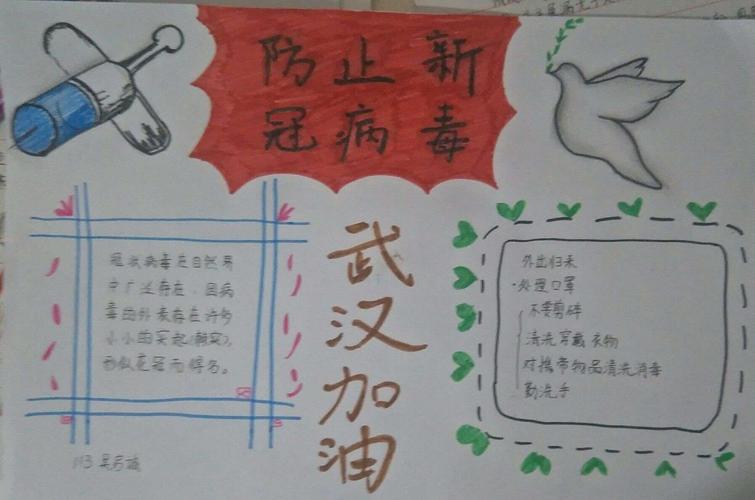 防止新
冠病毒
冠状病毒在自然界
中广泛存在，因病
毒的外表存在许多
小小的突起(棘突)，
形似花冠而得名。
武
汉
加
油
外出归来
·处理口罩
不要剪碎
清洗穿戴衣物
对携带物品清洗消毒
勤洗手
113